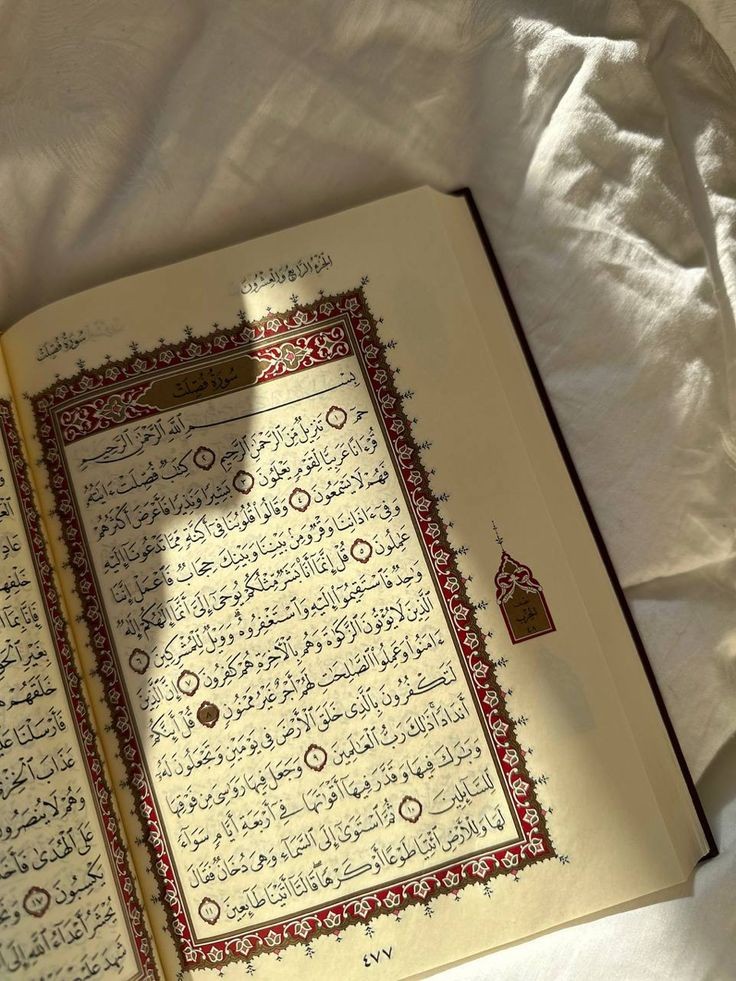 الجُزْءُ الرَّابِعُ وَالْعِشْرُونَ
سُورَةُ فُصِّلَتْ
سُورَةُ فُصِّلَتْ
بِسْمِ ٱللَّهِ ٱلرَّحْمَٰنِ ٱلرَّحِيمِ
حمٓ ١ تَنزِيلٌ مِّنَ ٱلرَّحْمَٰنِ ٱلرَّحِيمِ ٢ كِتَٰبٌ فُصِّلَتْ ءَايَٰتُهُۥ
قُرْءَانًا عَرَبِيًّا لِّقَوْمٍ يَعْلَمُونَ ٣ بَشِيرًا وَنَذِيرًا فَأَعْرَضَ أَكْثَرُهُمْ
فَهُمْ لَا يَسْمَعُونَ ٤ وَقَالُوا۟ قُلُوبُنَا فِىٓ أَكِنَّةٍ مِّمَّا تَدْعُونَآ إِلَيْهِ
وَفِىٓ ءَاذَانِنَا وَقْرٌ وَمِنۢ بَيْنِنَا وَبَيْنِكَ حِجَابٌ فَٱعْمَلْ إِنَّنَا
عَٰمِلُونَ ٥ قُلْ إِنَّمَآ أَنَا۠ بَشَرٌ مِّثْلُكُمْ يُوحَىٰٓ إِلَىَّ أَنَّمَآ إِلَٰهُكُمْ إِلَٰهٌ
وَٰحِدٌ فَٱسْتَقِيمُوٓا۟ إِلَيْهِ وَٱسْتَغْفِرُوهُ ۗ وَوَيْلٌ لِّلْمُشْرِكِينَ ٦
ٱلَّذِينَ لَا يُؤْتُونَ ٱلزَّكَوٰةَ وَهُم بِٱلْـَٔاخِرَةِ هُمْ كَٰفِرُونَ ٧ إِنَّ ٱلَّذِينَ
ءَامَنُوا۟ وَعَمِلُوا۟ ٱلصَّٰلِحَٰتِ لَهُمْ أَجْرٌ غَيْرُ مَمْنُونٍ ٨ قُلْ أَئِنَّكُمْ
لَتَكْفُرُونَ بِٱلَّذِى خَلَقَ ٱلْأَرْضَ فِى يَوْمَيْنِ وَتَجْعَلُونَ لَهُۥٓ
أَندَادًا ۚ ذَٰلِكَ رَبُّ ٱلْعَٰلَمِينَ ٩ وَجَعَلَ فِيهَا رَوَٰسِىَ مِن فَوْقِهَا
وَبَٰرَكَ فِيهَا وَقَدَّرَ فِيهَآ أَقْوَٰتَهَا فِىٓ أَرْبَعَةِ أَيَّامٍ سَوَآءً
لِّلسَّآئِلِينَ ١٠ ثُمَّ ٱسْتَوَىٰٓ إِلَى ٱلسَّمَآءِ وَهِىَ دُخَانٌ فَقَالَ
لَهَا وَلِلْأَرْضِ ٱئْتِيَا طَوْعًا أَوْ كَرْهًا قَالَتَآ أَتَيْنَا طَآئِعِينَ ١١
الحِزْب
٤٧٧
عَادٍ
خَلْفِهِمْ
فَإِنَّا بِمَآ
بِغَيْرِ ٱلْحَقِّ
خَلَقَهُمْ هُوَ
فَأَرْسَلْنَا
عَذَابَ ٱلْخِزْىِ
وَهُمْ لَا يُنصَرُونَ
عَلَى ٱلْهُدَىٰ
يَكْسِبُونَ ١٧
يُحْشَرُ أَعْدَآءُ ٱللَّهِ إِلَى
شَهِدَ عَلَيْهِمْ